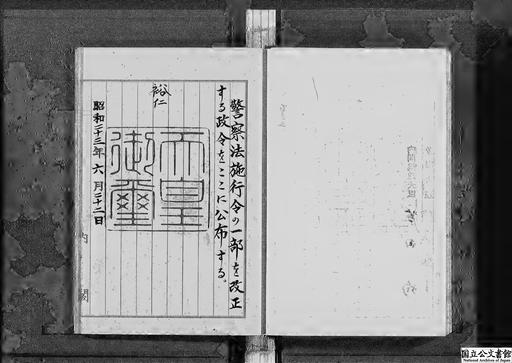 警察法施行令の一部を改正
する政令をここに公布する。
裕仁
天皇御璽
昭和二十三年六月二十二日
内閣
国立公文書館
National Archives of Japan